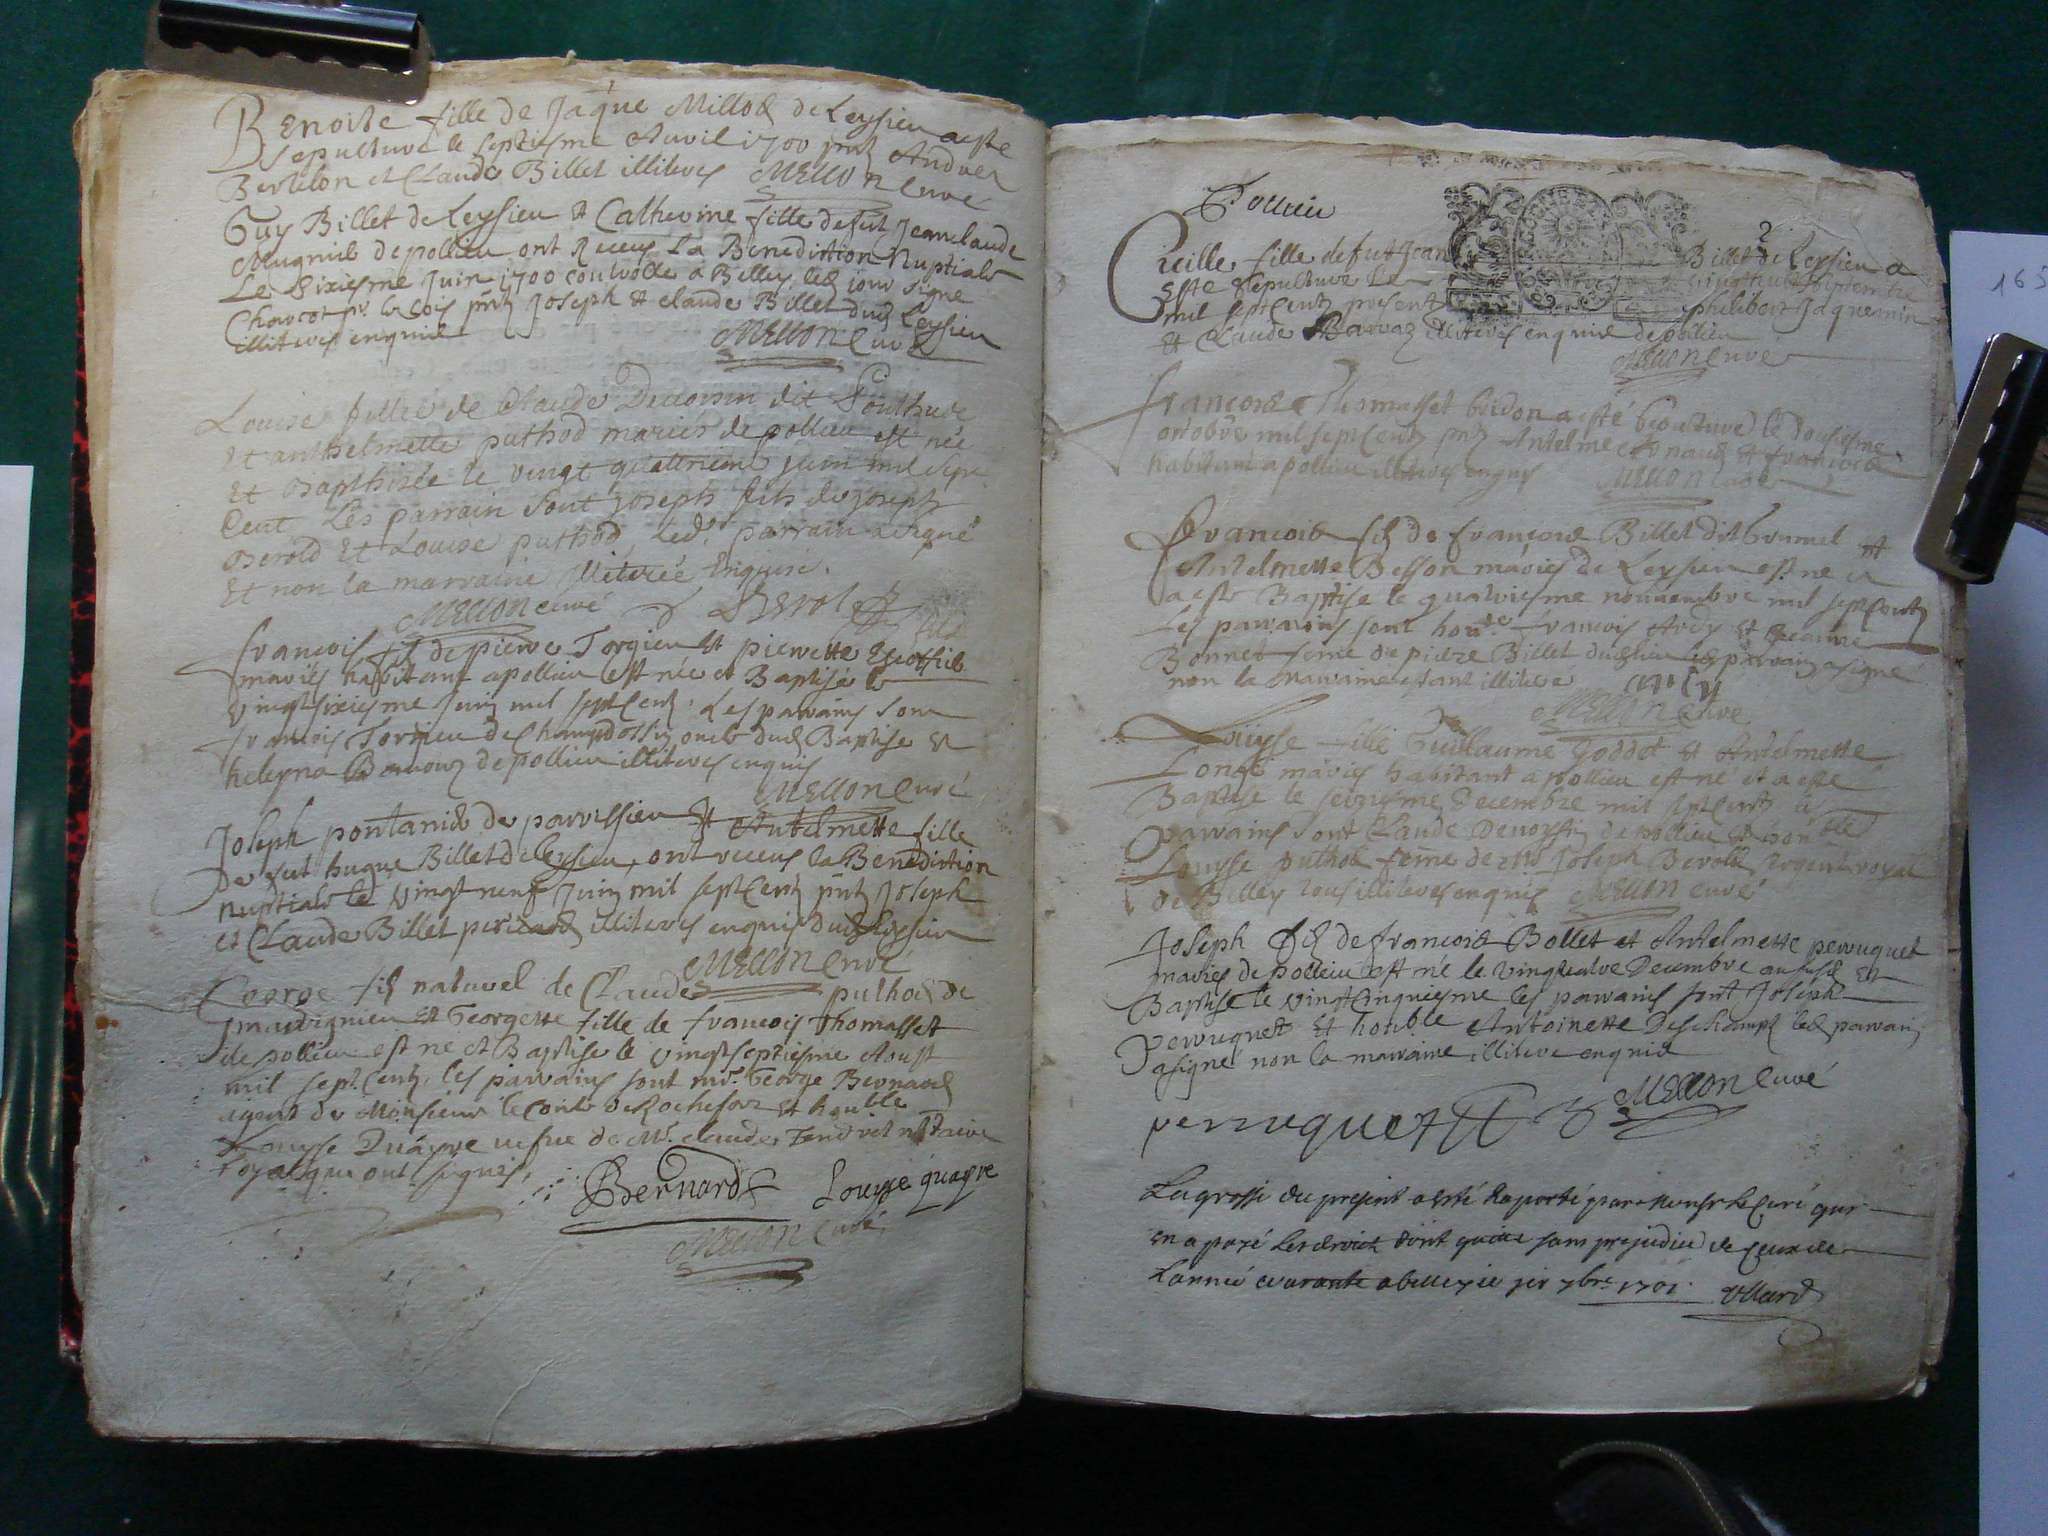 Benoite fille de Jaque Millod de Leysieu a este
sepulture le septiesme Auril 1700 pntz Andver
Bertelon et Claude Billet illiteres MELLON Curé
Guy Billet de Leysieu et Catherine fille de fut Jean claude
Mugnier de pollieu ont Receus La Benediction Nuptiale
Le sixiesme Juin 1700 controllé a Belley led jour signe
pr. le sois pntz Joseph et claude Billet dud Leysieu
illiteres enquis MELLON Curé
Louise fillie de Claude Decroisin dit
Et anthelmette puthod mariés de pollieu est née
Et bapthisée le vingt quatrieme juin mil sept
Cent Les parrain sont joseph fils de joseph
Berold Et Louise puthod, Led. parrain a signé
Et non la marraine illiterée Enquise.
MELLON curé Berolet fils
francois filz de pierre Torgieu et pierrette
mariés habitant a pollieu est née et Baptisé le
vingtsixiesme Juin mil sept Centz. Les parains sont
francois Torgieu de oncle dud Baptise et
heleyne de pollieu illiteres enquis
MELLON Curé
Joseph pontanier de parvissieu et Antelmette fille
de fut hugue Billet de Leysieu, ont receus la Benediction
nuptiale le vingt neuf Juin mil sept Centz pntz Joseph
et Claude Billet illiteres enquis dud Leysieu
MELLON Curé
George filz naturel de Claude puthod de
marignieu et Georgette fille de francois thomasset
de pollieu est ne et Baptise le vingtseptiesme Aoust
mil sept. Centz. les parrains sont mr. George Bernard
agent de Monsieur le Conte de Rochefort et honble
Louyse Quayre vefve de Mr. claude notaire
royal qui ont signés.
Bernard Louyse quayre
MELLON Curé
Pollieu
2
Cicille fille de fut Jean Billet de Leysieu a
este sepulture Le vingthuit septembre
mil sept Centz present philibert Jaquemin
et Claude illiteres enquis de pollieu
MELLON Curé
francoise Thomasset a esté sepulture le dousiesme
octobre mil sept Centz pntz Antelme et francois
habitant a pollieu illiteres enquis MELLON Curé
francois filz de francois Billet dit Grumel et
Antelmette Besson mariés de Leysieu est ne et
a este Baptise le quatriesme nouuembre mil sept Centz
Les parrains sont honte. francois Ardy et
Bonnet feme de pierre Billet dud lieu led parrain a signé
non la marraine estant illitere Ardy
MELLON Curé
Louyse fille Guillaume Joddet et Antelmette
Longe mariés habitant a pollieu est ne et a este
Baptise le seiziesme Decembre mil sept Centz
parrains sont Claude de pollieu et honble
Louyse puthod feme de Joseph Berold sergent royal
de Belley tous illiteres enquis MELLON Curé
Joseph filz de francois Bollet et Antelmette perruquet
mariés de pollieu est né le vingtcatre Decembre et
Baptise le vingt Cinquiesme les parrains sont Joseph
perruquet et honble Antoinette Deschamps led parrain
a signé non la marraine illitere enquise
perruquet MELLON Curé
La grosse du present a esté Raporté par Monsr Le Curé qui
en a payé Les droict dont quitte sans prejudice de ceux de
L'année courante a belley ce 7bre 1701.
165